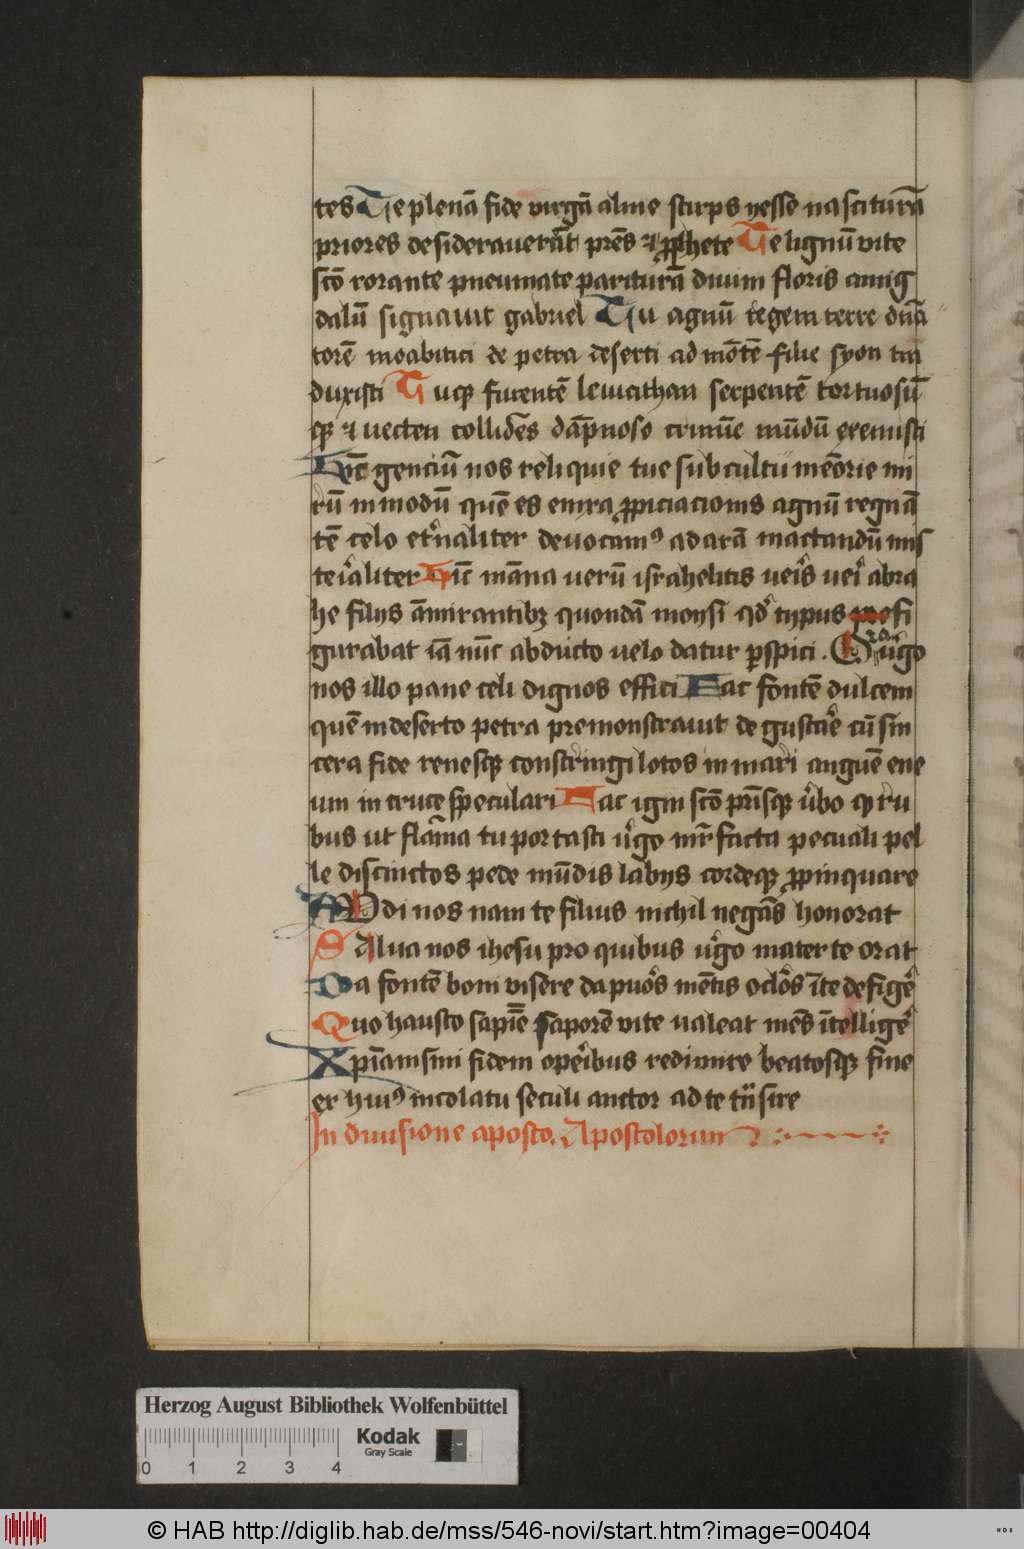 tes Te plenā fide virgā alme stirps yesse nasciturā
priores desiderauerūt pr̄es ⁊ ꝓphete Te lignū vite
sc̄o rorante pneumate pariturā diuum floris amig
dalū signauit gabriel Tu agnū regem terre dn̄a
torē moabitici de petra deserti ad mōtē filie syon tra
duxisti Tuqꝫ furentē leuiathan serpentē tortuosū
qꝫ ⁊ vecten collidēs dāpnoso crimīe mūdū exemisti
Hīc genciū nos reliquie tue sub cultu memōrie mi
rū in modū quē es enixa ꝓpiciacionis agnū regnā
tē celo et̓naliter deuocamꝰ ad arā mactandū mis
te̓ialiter Hīc māna uerū israhelitis ueīs uei̓ abra
he filijs āmirantibꝫ quondā moysi qd̓ typus prefi
gurabat iā nūc abducto uelo datur ꝑspici . Ora u̓go
nos illo pane celi dignos effici Fac fontē dulcem
quē in deserto petra premonstrauit degustare̓ cū sin
cera fide renesqꝫ constringi lotos in mari anguē ene
um in cruce speculari Fac igni sc̄o pr̄isqꝫ u̓bo q ru
bus ut flāma tu portasti u̓go mr̄ facta pecuali pel
le discinctos pede mūdis labijs cordeqꝫ ꝓpinquare
Audi nos nam te filius nichil negās honorat
Salua nos ihesu pro quibus u̓go mater te orat
Da fontē boni visere da puōs mētis oclōs ī te defige̓
Quo hausto sapīe saporē vite ualeat mēs ītellige̓
Xp̄ianismi fidem ope̓ibus redimire beatoqꝫ fine
ex huiꝰ incolatu seculi auctor ad te tn̄sire
In diuisione aposto. Apostolorum
Herzog August Bibliothek Wolfenbüttel
Kodak
Gray Scale
0 1 2 3 4
© HAB http://diglib.hab.de/mss/546-novi/start.htm?image=00404